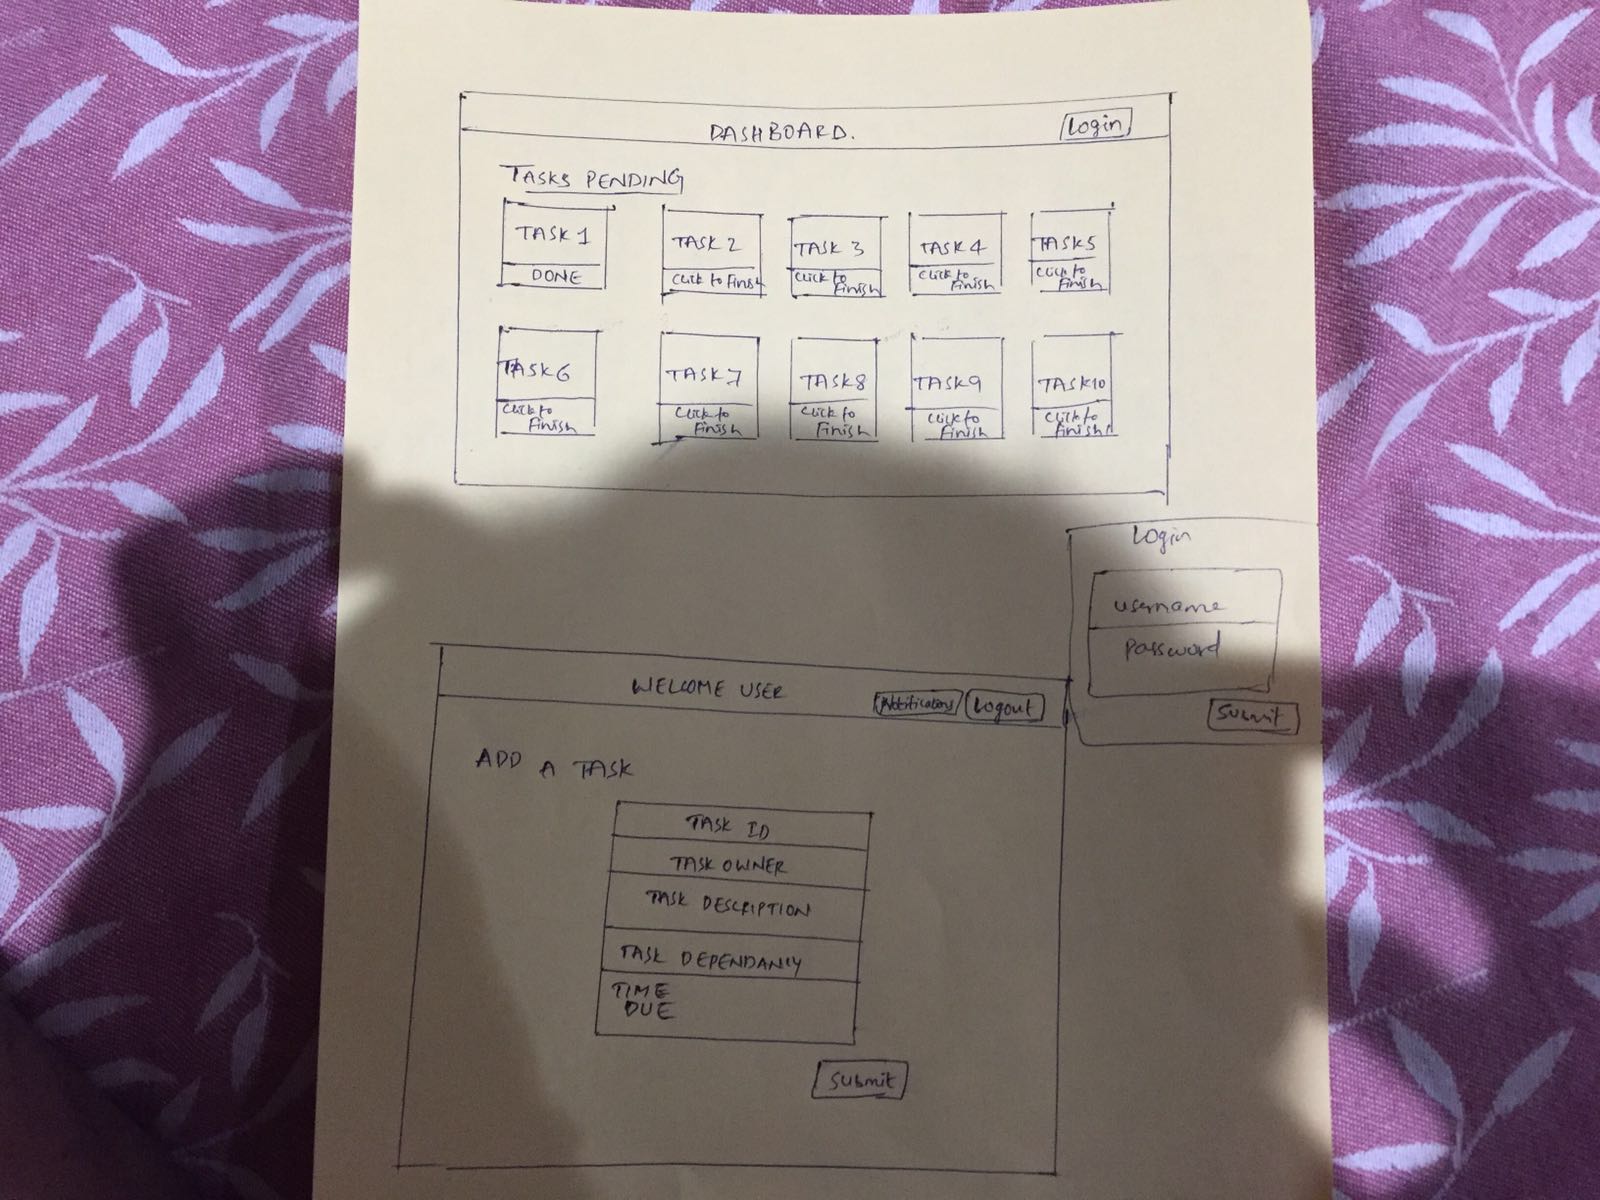 DASHBOARD.
Login
TASKS PENDING
TASK 1
DONE
TASK 2
Click to Finish
TASK 3
Click to
Finish
TASK 4
Click to
Finish
TASK5
Click to
Finish
TASK6
Click to
Finish
TASK7
Click to
Finish
TASK8
Click to
Finish
TASK9
Click to
Finish
TASK10
Click to
Finish
Login
username
password
Submit
WELCOME USER
Notifications
Logout
ADD A TASK
TASK ID
TASK OWNER
TASK DESCRIPTION
TASK DEPENDANCY
TIME
DUE
Submit